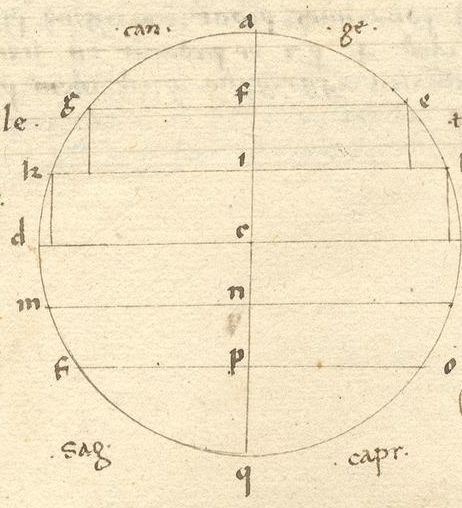 .can. a .ge.
le. g f e
k i
d c
m n
p o
.sag. q .capr.